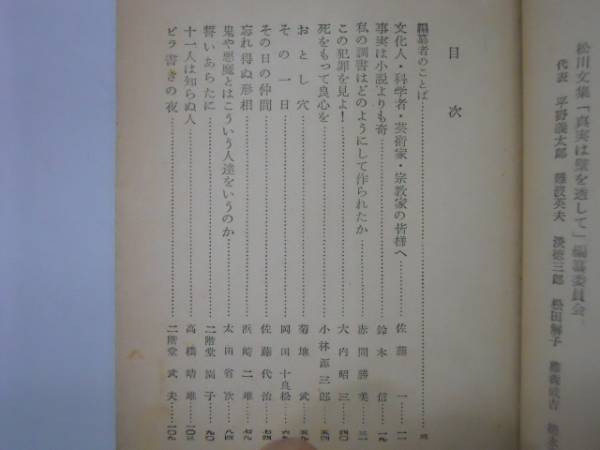 松川文集「真実は壁を透して」編纂委員会
代表 平野義太郎 難波英夫 淡徳三郎 松田解子 藤森成吉
目次
編纂者のことば
文化人・科学者・芸術家・宗教家の皆様へ 佐藤一 一一
事実は小説よりも奇 鈴木信 一九
私の調書はどのようにして作られたか 赤間勝美 三一
この犯罪を見よ! 大内昭三 四〇
死をもって良心を 小林源三郎 五四
おとし穴 菊地武 五九
その一日 岡田十良松 六九
その日の仲間 佐藤代治 七四
忘れ得ぬ形相 浜崎二雄 七八
鬼や悪魔とはこういう人達をいうのか 太田省次 八四
誓いあらたに 二階堂園子 九〇
十一人は知らぬ人 高橋晴雄 一〇三
ビラ書きの夜 二階堂武夫 一〇九